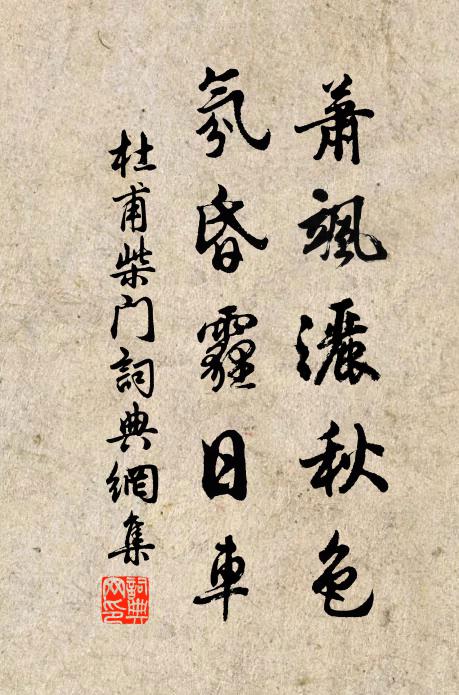 蕭颯灑秋色
氛昏霾日車
杜甫柴門詞典網集
詞典网印